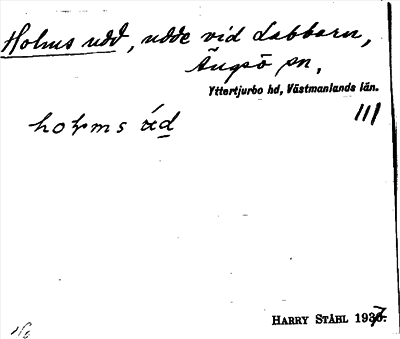 Holms udd, udde vid Labbarn,
Ängsö sn,
Yttertjurbo hd, Västmanlands län.
111
holms ùd
HARRY STÅHL 1937.